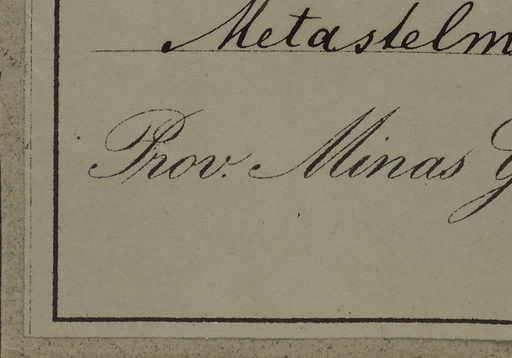 Metastelm
Prov. Minas G